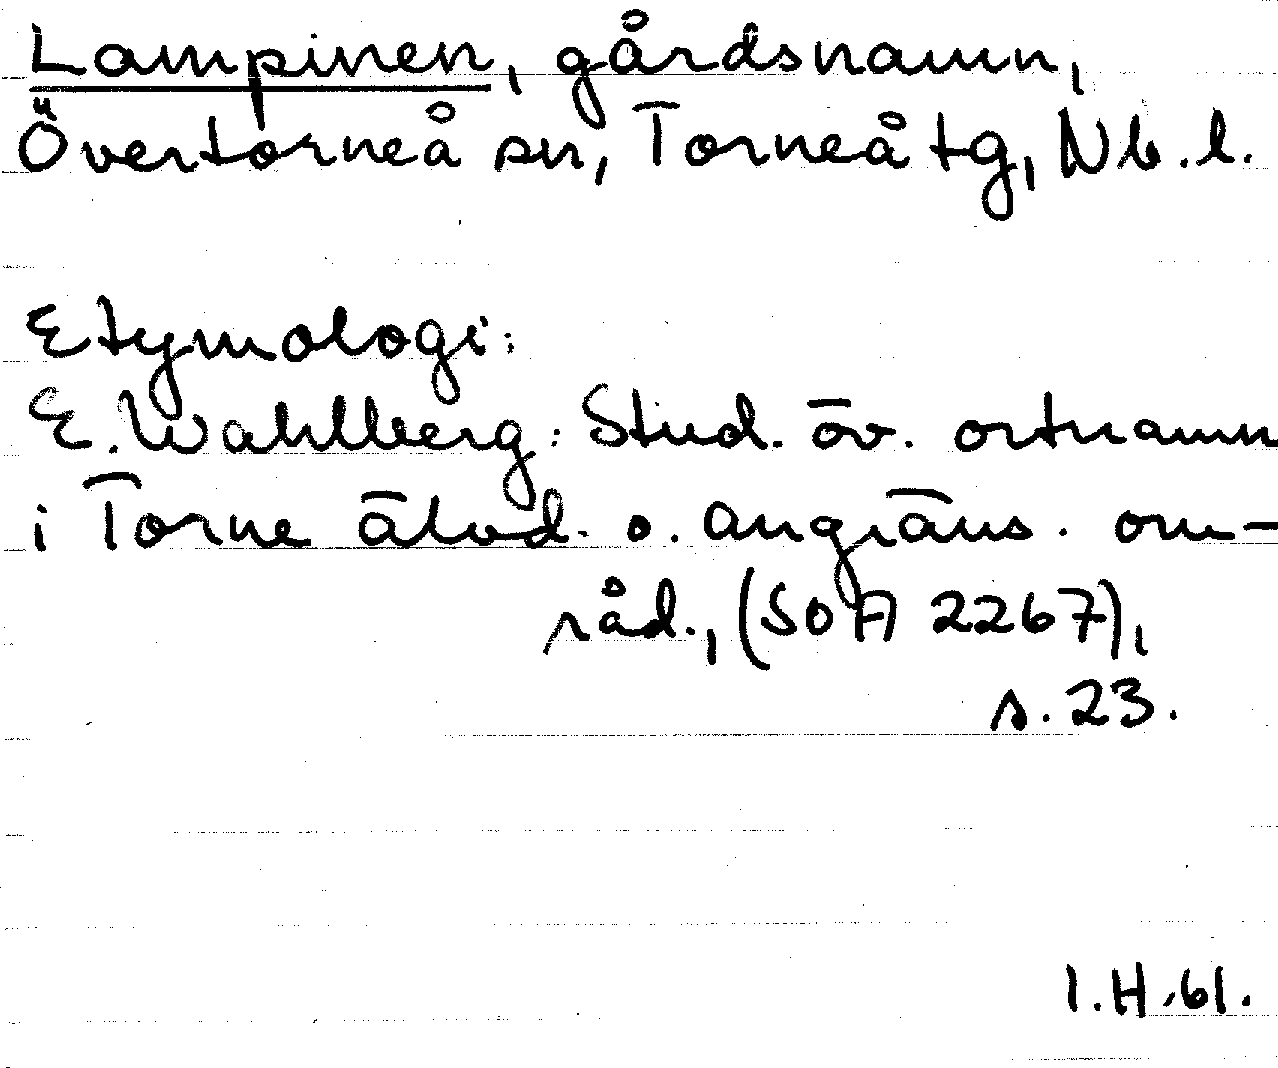 Lampinen, gårdsnamn,
Övertorneå sn, Torneå tg, Nb. l.
Etymologi:
E. Wahlberg: Stud. öv. ortnamn
i Torne älvd. o. angräns. om-
råd., (SOA 2267),
s. 23.
I.H.61.